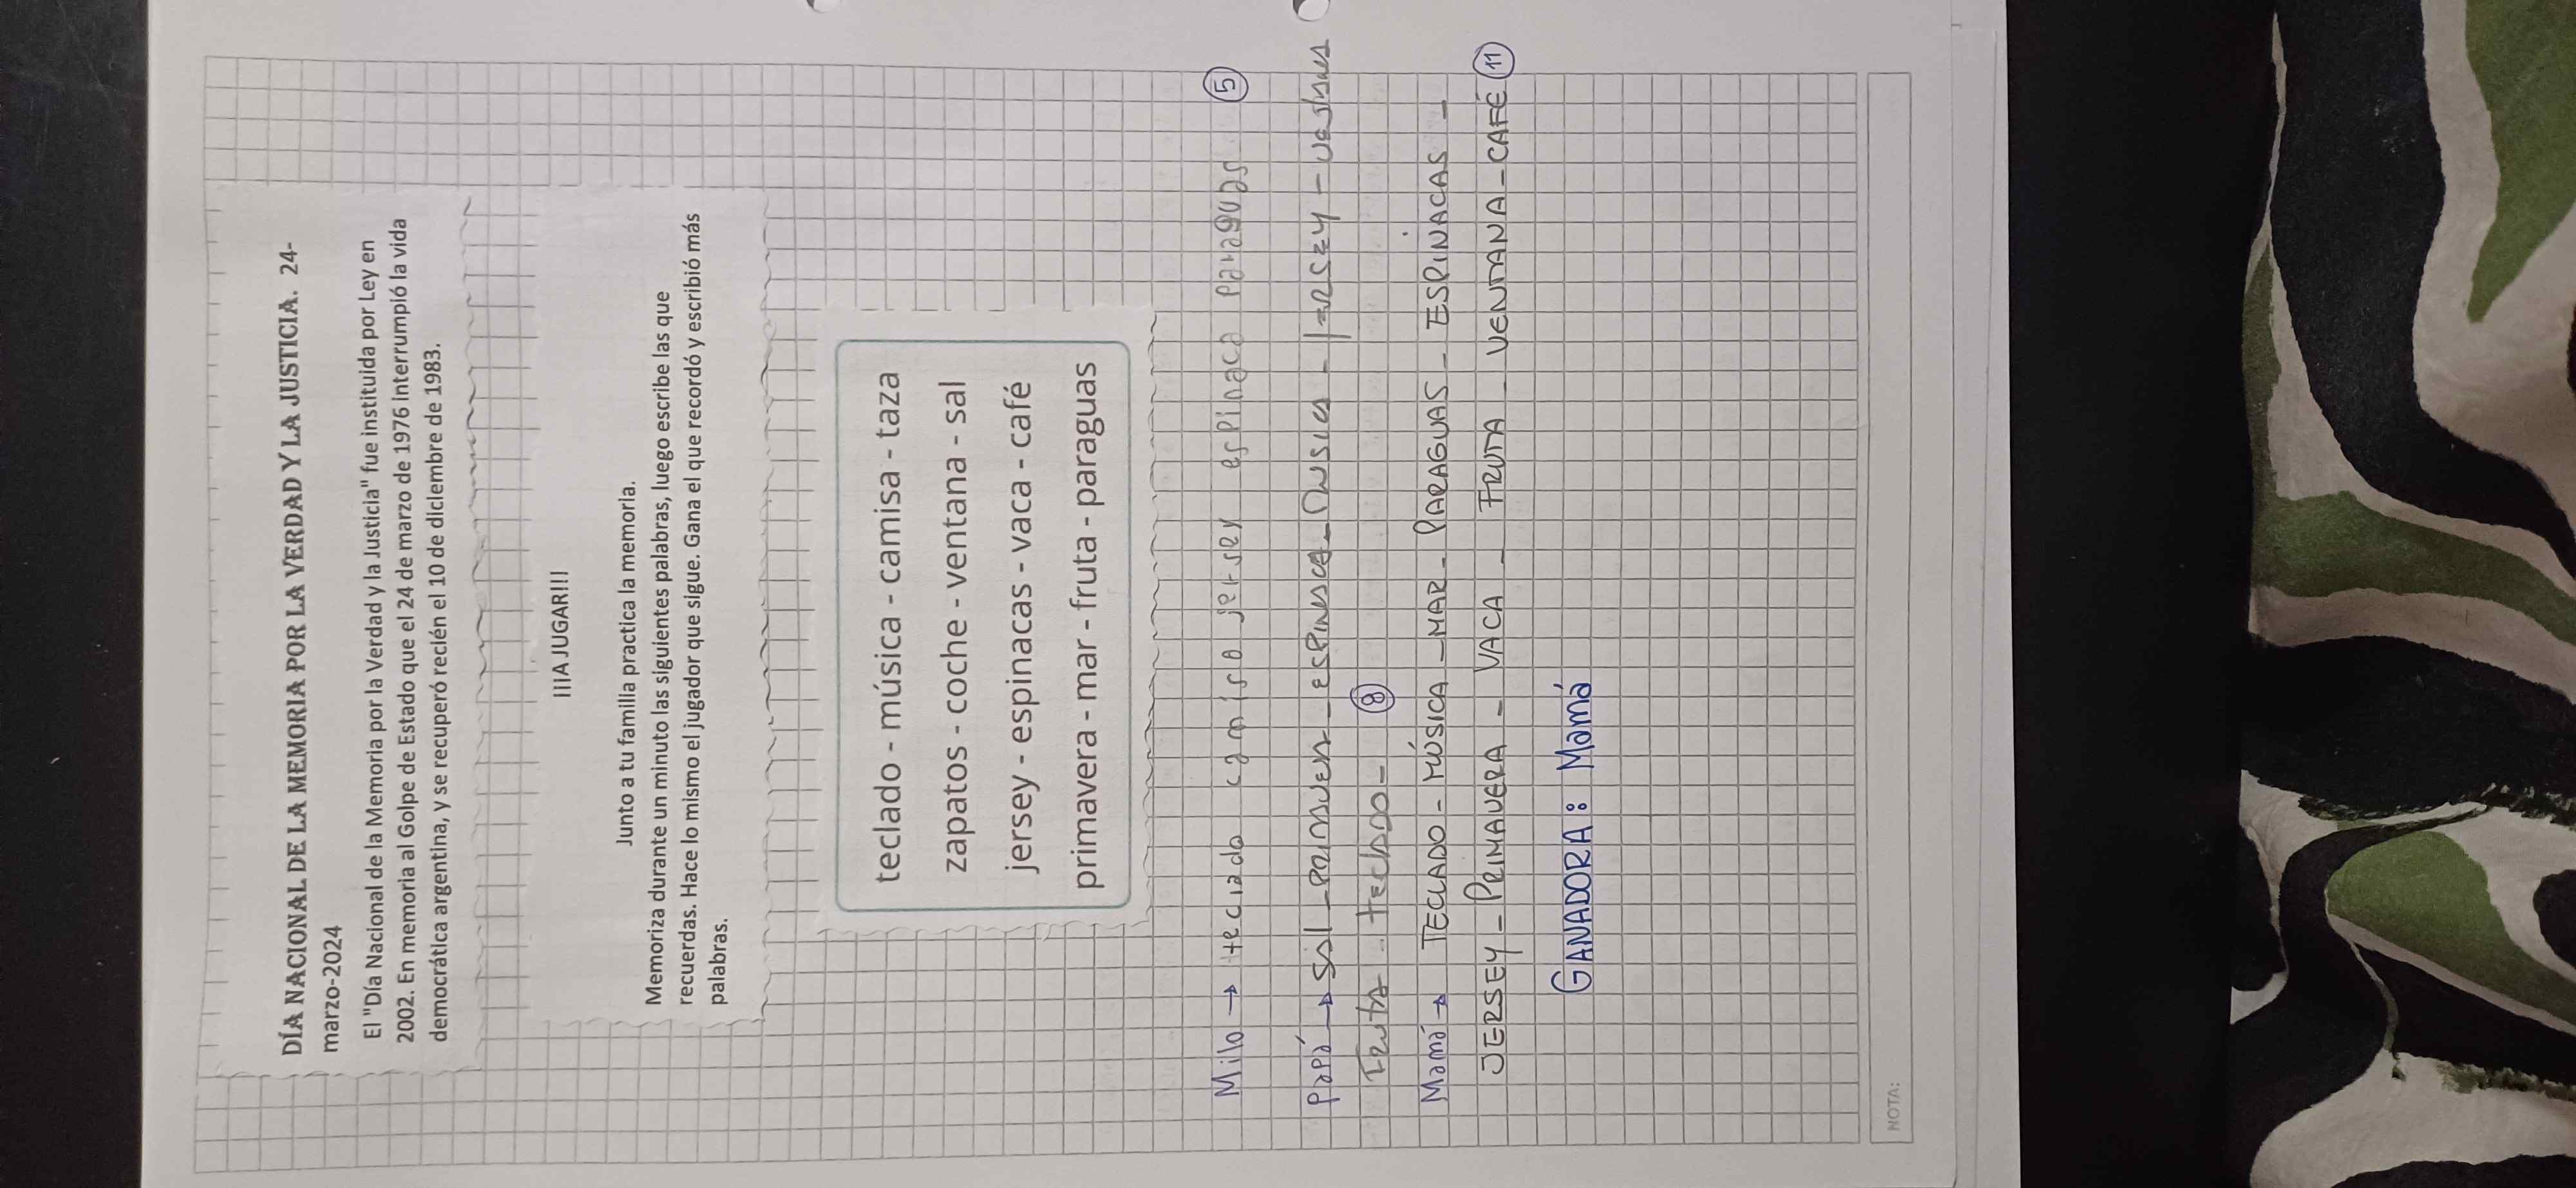 DÍA NACIONAL DE LA MEMORIA POR LA VERDAD Y LA JUSTICIA. 24-
marzo-2024
El "Día Nacional de la Memoria por la Verdad y la Justicia" fue instituida por Ley en
2002. En memoria al Golpe de Estado que el 24 de marzo de 1976 interrumpió la vida
democrática argentina, y se recuperó recién el 10 de diciembre de 1983.
¡¡¡A JUGAR!!!
Junto a tu familia practica la memoria.
Memoriza durante un minuto las siguientes palabras, luego escribe las que
recuerdas. Hace lo mismo el jugador que sigue. Gana el que recordó y escribió más
palabras.
teclado - música - camisa - taza
zapatos - coche - ventana - sal
jersey - espinacas - vaca - café
primavera - mar - fruta - paraguas
Milo → teclado camisa jersey espinaca paraguas 5
Papá → sal - primavera - espinaca - musica - jersey - ventana
Fruta - teclado - 8
Mamá → TECLADO - MÚSICA - MAR - PARAGUAS - ESPINACAS -
JERSEY - PRIMAVERA - VACA - FRUTA - VENTANA - CAFÉ 11
GANADORA: Mamá
NOTA: